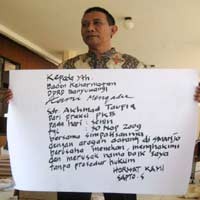 Kepada Yth.
Badan Kehormatan
DPRD Banyuwangi
Kami Mengadu
Sdr. Akhmad Taufiq
Dari Fraksi PKB
pada hari : senin
tgl 30 Nop 2009
bersama simpatisannya
dengan arogan datang di SMANJO
berusaha menekan, menghakimi
dan merusak nama baik saya
tanpa prosedur hukum
HORMAT KAMI
SAPTO. S